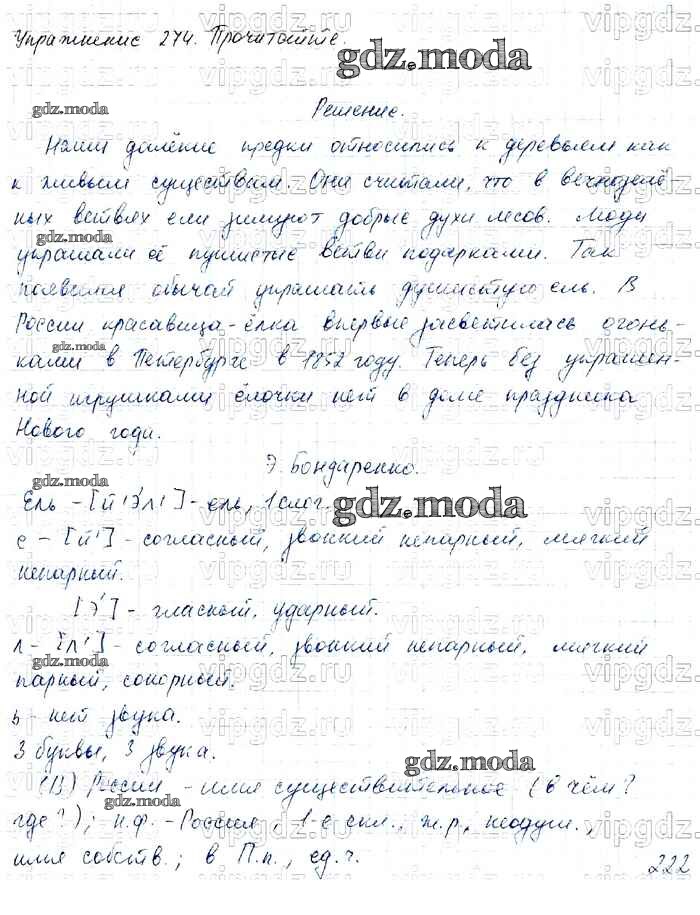 Упражнение 274. Прочитайте.
gdz.moda
Решение.
Наши далёкие предки относились к деревьям как
к живым существам. Они считали, что в вечнозелё-
ных ветвях ели зимуют добрые духи лесов. Люди
украшали её пушистые ветви подарками. Так
появился обычай украшать душистую ель. В
России красавица-ёлка впервые засветилась огонь-
ками в Петербурге в 1852 году. Теперь без украшен-
ной игрушками ёлочки нет в доме праздника
Нового года.
Э. Бондаренко.
Ель - [й'э́л'] - ель, 1 слог.
е - [й'] - согласный, звонкий непарный, мягкий
непарный.
[э́] - гласный, ударный.
л - [л'] - согласный, звонкий непарный, мягкий
парный, сонорный.
ь - нет звука.
3 буквы, 3 звука.
(В) России - имя существительное (в чём?
где?); н.ф. - Россия, 1-е скл., ж.р., неодуш.,
имя собств.; в П.п., ед.ч.
222